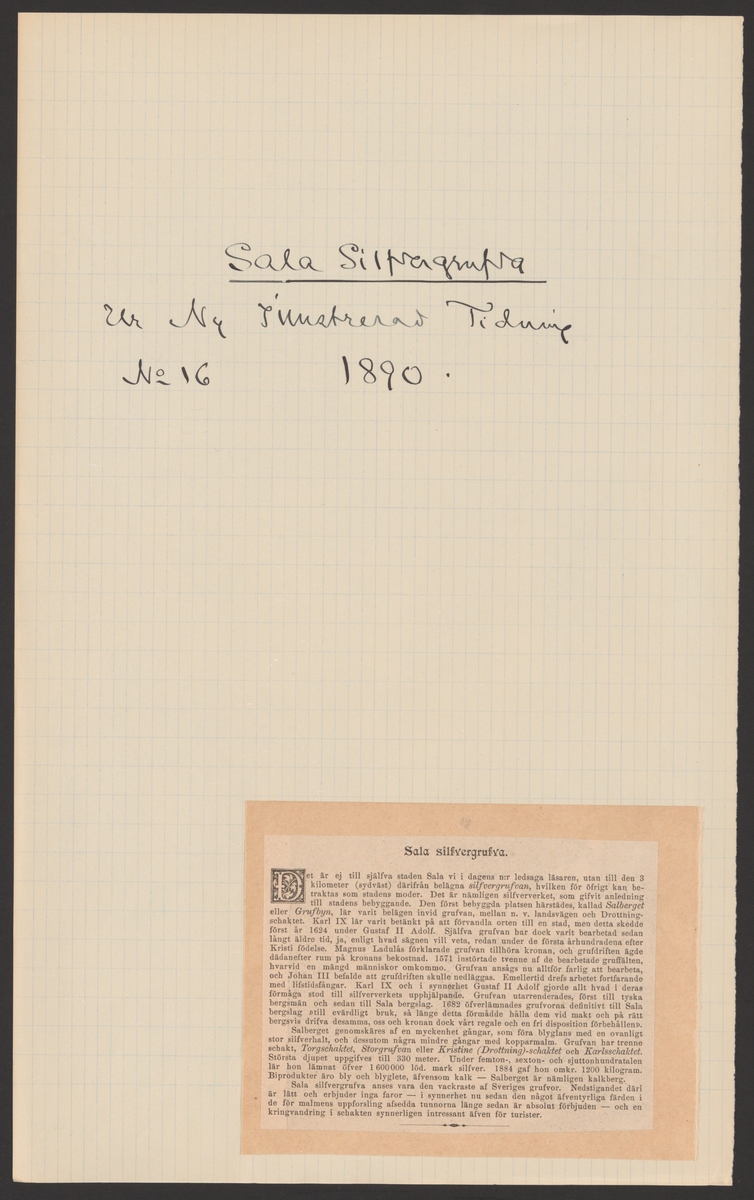 Sala Silfvergrufva
Ur Ny Illustrerad Tidning
No 16 1890.
Sala silfvergrufva.
Det är ej till själfva staden Sala vi i dagens n:r ledsaga läsaren, utan till den 3
kilometer (sydväst) därifrån belägna silfvergrufvan, hvilken för öfrigt kan be-
traktas som stadens moder. Det är nämligen silfververket, som gifvit anledning
till stadens bebyggande. Den först bebyggda platsen härstädes, kallad Salberget
eller Grufbyn, lär varit belägen invid grufvan, mellan n. v. landsvägen och Drottning-
schaktet. Karl IX lär varit betänkt på att förvandla orten till en stad, men detta skedde
först år 1624 under Gustaf II Adolf. Själfva grufvan har dock varit bearbetad sedan
långt äldre tid, ja, enligt hvad sägnen vill veta, redan under de första århundradena efter
Kristi födelse. Magnus Ladulås förklarade grufvan tillhöra kronan, och grufdriften ägde
dädanefter rum på kronans bekostnad. 1571 instörtade tvenne af de bearbetade gruffälten,
hvarvid en mängd människor omkommo. Grufvan ansågs nu alltför farlig att bearbeta,
och Johan III befalde att grufdriften skulle nedläggas. Emellertid drefs arbetet fortfarande
med lifstidsfångar. Karl IX och i synnerhet Gustaf II Adolf gjorde allt hvad i deras
förmåga stod till silfververkets upphjälpande. Grufvan utarrenderades, först till tyska
bergsmän och sedan till Sala bergslag. 1682 öfverlämnades grufvorna definitivt till Sala
bergslag »till evärdligt bruk, så länge detta förmådde hålla dem vid makt och på rätt
bergsvis drifva desamma, oss och kronan dock vårt regale och en fri disposition förbehållen».
Salberget genomskäres af en myckenhet gångar, som föra blyglans med en ovanligt
stor silfverhalt, och dessutom några mindre gångar med kopparmalm. Grufvan har trenne
schakt, Torgschaktet, Storgrufvan eller Kristine (Drottning)-schaktet och Karlsschaktet.
Största djupet uppgifves till 330 meter. Under femton-, sexton- och sjuttonhundratalen
lär hon lämnat öfver 1 600 000 löd. mark silfver. 1884 gaf hon omkr. 1200 kilogram.
Biprodukter äro bly och blyglete, äfvensom kalk — Salberget är nämligen kalkberg.
Sala silfvergrufva anses vara den vackraste af Sveriges grufvor. Nedstigandet däri
är lätt och erbjuder inga faror — i synnerhet nu sedan den något äfventyrliga färden i
de för malmens uppforsling afsedda tunnorna länge sedan är absolut förbjuden — och en
kringvandring i schakten synnerligen intressant äfven för turister.